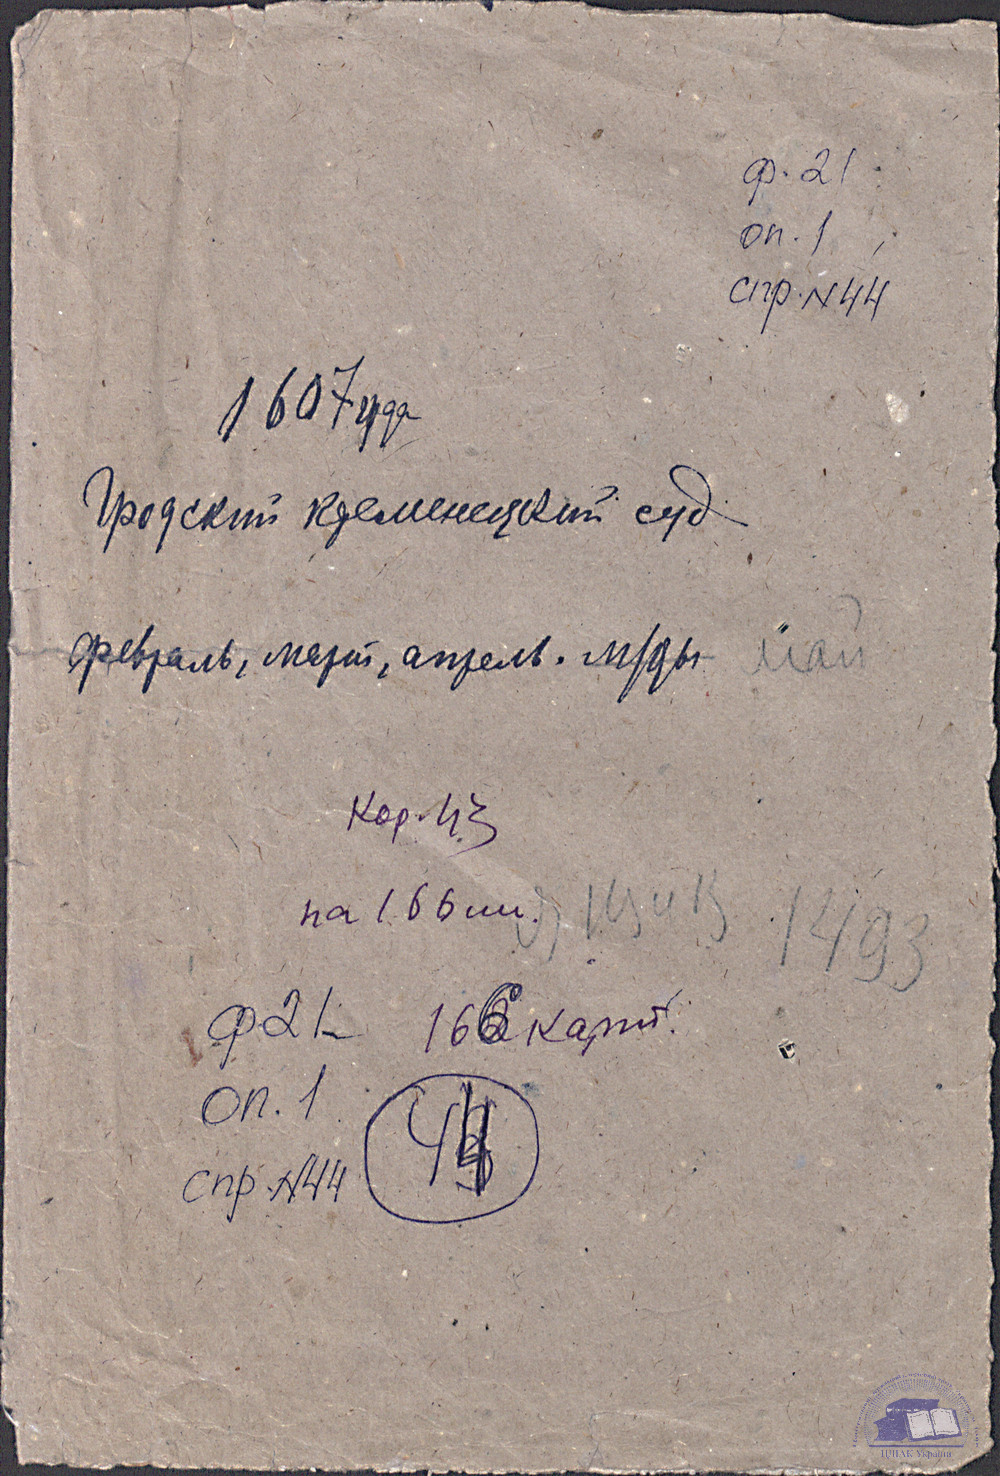 ф. 21
оп. 1
спр. N44
1607 года
Гродский кременецкий суд
февраль, март, апрель. м/цы май
Кор. 43
на 166 лл.
ящик 1493
ф 21 166 карт.
оп. 1
44
спр. N44
ЦДІАК України